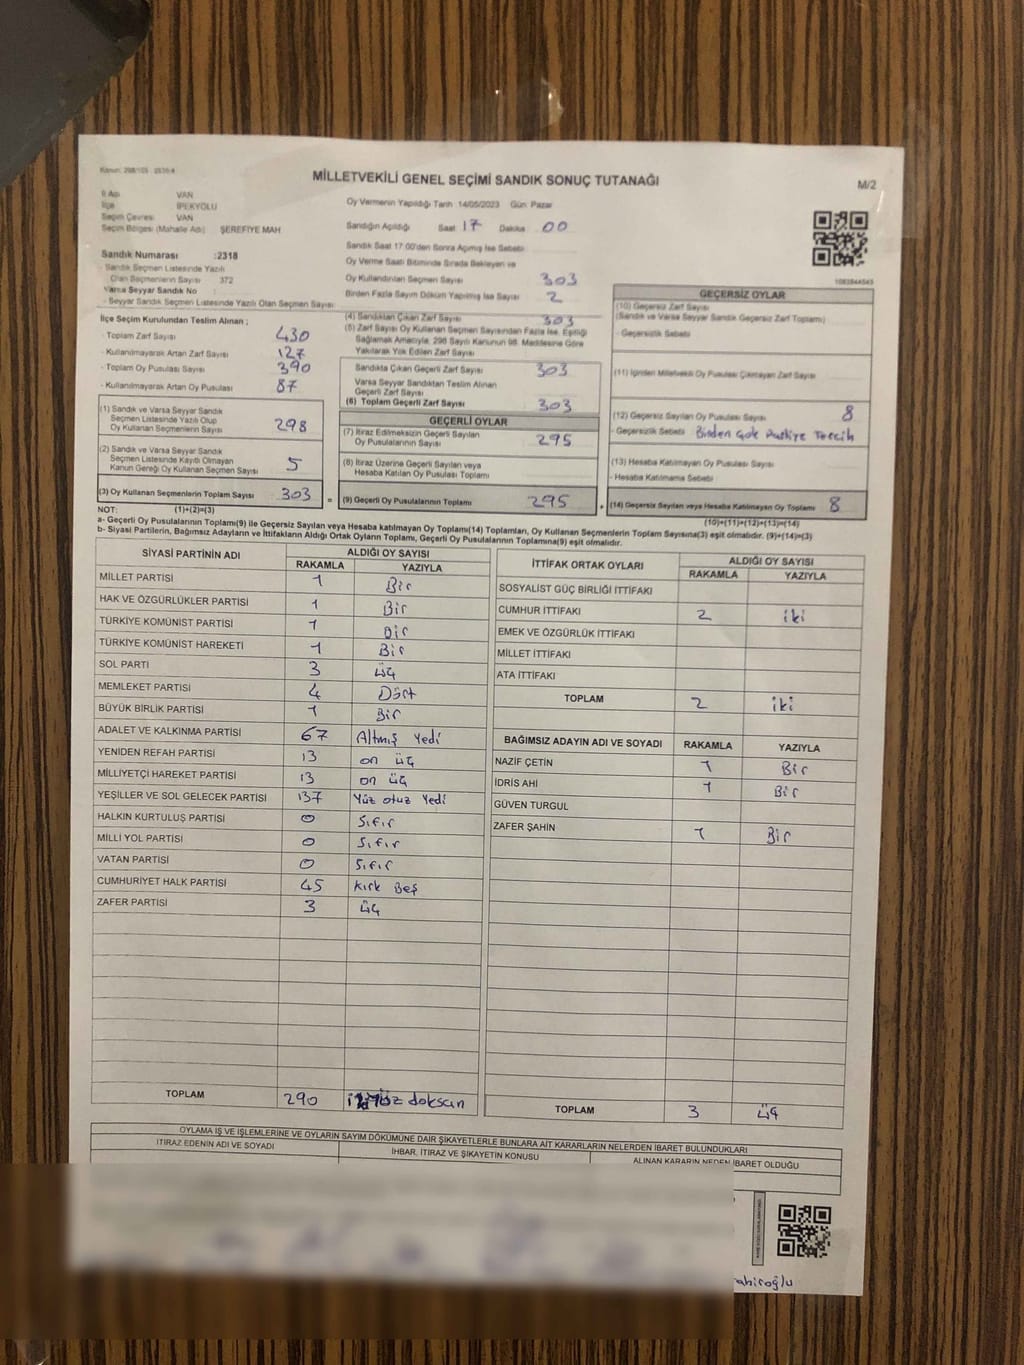 MİLLETVEKİLİ GENEL SEÇİMİ SANDIK SONUÇ TUTANAĞI
M/2
İl Adı VAN
İlçe İPEKYOLU
Seçim Çevresi VAN
Seçim Bölgesi (Mahalle Adı) ŞEREFİYE MAH
Sandık Numarası :2318
- Sandık Seçmen Listesinde Yazılı
Olan Seçmenlerin Sayısı 372
Varsa Seyyar Sandık No :
- Seyyar Sandık Seçmen Listesinde Yazılı Olan Seçmen Sayısı
Oy Vermenin Yapıldığı Tarih 14/05/2023 Gün: Pazar
Sandığın Açıldığı Saat 17 Dakika 00
Sandık Saat 17:00'den Sonra Açılmış İse Sebebi
Oy Verme Saati Bitiminde Sırada Bekleyen ve
Oy Kullandırılan Seçmen Sayısı 303
Birden Fazla Sayım Döküm Yapılmış İse Sayısı 2
İlçe Seçim Kurulundan Teslim Alınan ;
- Toplam Zarf Sayısı 430
- Kullanılmayarak Artan Zarf Sayısı 127
- Toplam Oy Pusulası Sayısı 390
- Kullanılmayarak Artan Oy Pusulası 87
(1) Sandık ve Varsa Seyyar Sandık
Seçmen Listesinde Yazılı Olup
Oy Kullanan Seçmenlerin Sayısı 298
(2) Sandık ve Varsa Seyyar Sandık
Seçmen Listesinde Kayıtlı Olmayan
Kanun Gereği Oy Kullanan Seçmen Sayısı 5
(3) Oy Kullanan Seçmenlerin Toplam Sayısı 303
(4) Sandıktan Çıkan Zarf Sayısı 303
(5) Zarf Sayısı Oy Kullanan Seçmen Sayısından Fazla İse, Eşitliği
Sağlamak Amacıyla, 298 Sayılı Kanunun 98. Maddesine Göre
Yakılarak Yok Edilen Zarf Sayısı
Sandıkta Çıkan Geçerli Zarf Sayısı 303
Varsa Seyyar Sandıktan Teslim Alınan
Geçerli Zarf Sayısı
(6) Toplam Geçerli Zarf Sayısı 303
GEÇERLİ OYLAR
(7) İtiraz Edilmeksizin Geçerli Sayılan
Oy Pusulalarının Sayısı 295
(8) İtiraz Üzerine Geçerli Sayılan veya
Hesaba Katılan Oy Pusulası Toplamı
= (9) Geçerli Oy Pusulalarının Toplamı 295
GEÇERSİZ OYLAR
(10) Geçersiz Zarf Sayısı
(Sandık ve Varsa Seyyar Sandık Geçersiz Zarf Toplamı)
- Geçersizlik Sebebi
(11) İçinden Milletvekili Oy Pusulası Çıkmayan Zarf Sayısı
(12) Geçersiz Sayılan Oy Pusulası Sayısı 8
- Geçersizlik Sebebi Birden Çok Partiye Tercih
(13) Hesaba Katılmayan Oy Pusulası Sayısı
- Hesaba Katılmama Sebebi
+ (14) Geçersiz Sayılan veya Hesaba Katılmayan Oy Toplamı 8
NOT: (1)+(2)=(3) (10)+(11)+(12)+(13)=(14)
a- Geçerli Oy Pusulalarının Toplamı(9) ile Geçersiz Sayılan veya Hesaba katılmayan Oy Toplamı(14) Toplamları, Oy Kullanan Seçmenlerin Toplam Sayısına(3) eşit olmalıdır. (9)+(14)=(3)
b- Siyasi Partilerin, Bağımsız Adayların ve İttifakların Aldığı Ortak Oyların Toplamı, Geçerli Oy Pusulalarının Toplamına(9) eşit olmalıdır.
SİYASİ PARTİNİN ADI ALDIĞI OY SAYISI
RAKAMLA YAZIYLA
MİLLET PARTİSİ 1 Bir
HAK VE ÖZGÜRLÜKLER PARTİSİ 1 Bir
TÜRKİYE KOMÜNİST PARTİSİ 1 Bir
TÜRKİYE KOMÜNİST HAREKETİ 1 Bir
SOL PARTİ 3 üç
MEMLEKET PARTİSİ 4 Dört
BÜYÜK BİRLİK PARTİSİ 1 Bir
ADALET VE KALKINMA PARTİSİ 67 Altmış Yedi
YENİDEN REFAH PARTİSİ 13 on üç
MİLLİYETÇİ HAREKET PARTİSİ 13 on üç
YEŞİLLER VE SOL GELECEK PARTİSİ 137 Yüz otuz Yedi
HALKIN KURTULUŞ PARTİSİ 0 Sıfır
MİLLİ YOL PARTİSİ 0 Sıfır
VATAN PARTİSİ 0 Sıfır
CUMHURİYET HALK PARTİSİ 45 Kırk Beş
ZAFER PARTİSİ 3 üç
TOPLAM 290 doksan
İTTİFAK ORTAK OYLARI ALDIĞI OY SAYISI
RAKAMLA YAZIYLA
SOSYALİST GÜÇ BİRLİĞİ İTTİFAKI
CUMHUR İTTİFAKI 2 iki
EMEK VE ÖZGÜRLÜK İTTİFAKI
MİLLET İTTİFAKI
ATA İTTİFAKI
TOPLAM 2 iki
BAĞIMSIZ ADAYIN ADI VE SOYADI RAKAMLA YAZIYLA
NAZİF ÇETİN 1 Bir
İDRİS AHİ 1 Bir
GÜVEN TURGUL
ZAFER ŞAHİN 1 Bir
TOPLAM 3 üç
OYLAMA İŞ VE İŞLEMLERİNE VE OYLARIN SAYIM DÖKÜMÜNE DAİR ŞİKAYETLERLE BUNLARA AİT KARARLARIN NELERDEN İBARET BULUNDUKLARI
İTİRAZ EDENİN ADI VE SOYADI İHBAR, İTİRAZ VE ŞİKAYETİN KONUSU ALINAN KARARIN NEDEN İBARET OLDUĞU